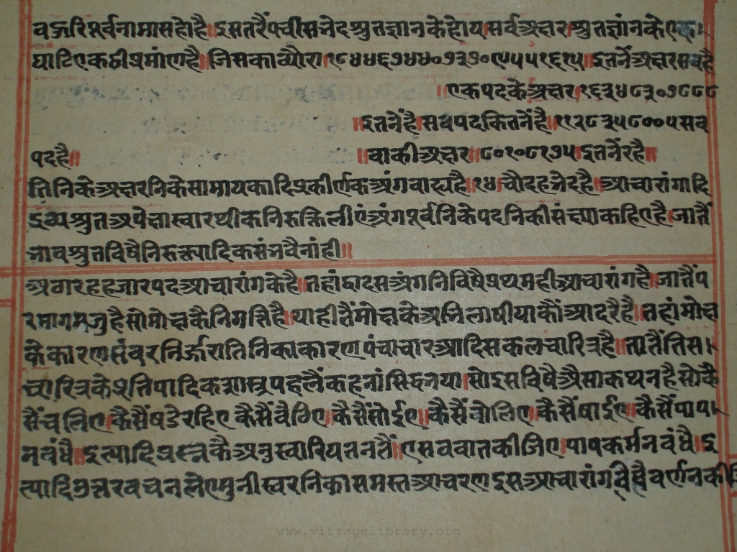 वऊरिपूर्वनामासहोहै॥इसतरैंपचीसभेदश्रुतज्ञानकेहोय सर्वअक्षरश्रुतज्ञांनकेएक।
घाटिएकठीप्रमांणहै॥जिसकाव्यौरा॥१८४४६७४४०७३७०९५५१६१५॥इतनेंअक्षरसबहै
एकपदकेअक्षर॥१६३४८३०७८८८
॥इतनेंहै॥सबपदकितनेंहै॥११२८३५८००५सब
पदहै॥ ॥बाकीअक्षर॥८०१०८१७५॥इतनेंरहै॥
तिनिकेअक्षरनिकेसामायकादिप्रकीर्णकअंगबाह्यहै॥१४॥चौदहभेदहै॥आचारांगादि
द्रव्यश्रुतअपेक्षास्वारथीकनिरुक्तिलीएंअंगपूर्वनिकेपदनिकीसंख्याकहिएहै॥जातैं
भावश्रुतविषैनिरुक्त्यादिकसंभवैनांही॥
अठारहहजारपदआचारांगकेहै॥तहांद्वादसअंगनिविषैप्रथमहीआचारांगहै॥जातैंप
रमागमजुहैसोमोक्षकैनिमत्तिहै॥याहीतैंमोक्षकेअभिलाषीयाकौंआदरैहै॥तहांमोक्ष
केकारणसंवरनिर्ज्जरातिनिकाकारणपंचाचारआदिसकलचारित्रहै॥तातैंतिस।
चारित्रकेप्रतिपादिकशास्त्रपहलैंकहनांसिद्धभया॥सोइसविषैऔसाकथनहैसोकै
सैंचलिए॥कैसैंषडेरहिए॥कैसैंबैठिए॥कैसैंसोईए॥कैसैंबोलिए॥कैसैंषाईए॥कैसैंपाप।
नबंधै॥इत्यादिप्रस्नकैअनुस्वारियतनतैं॥एसबबातकीजिए॥पापकर्मनबंधै॥इ
त्यादिउत्तरबचनलेएमुनीस्वरनिकासमस्तआचरणइसआचारांगविषैवर्णनकी
www.vitragelibrary.org